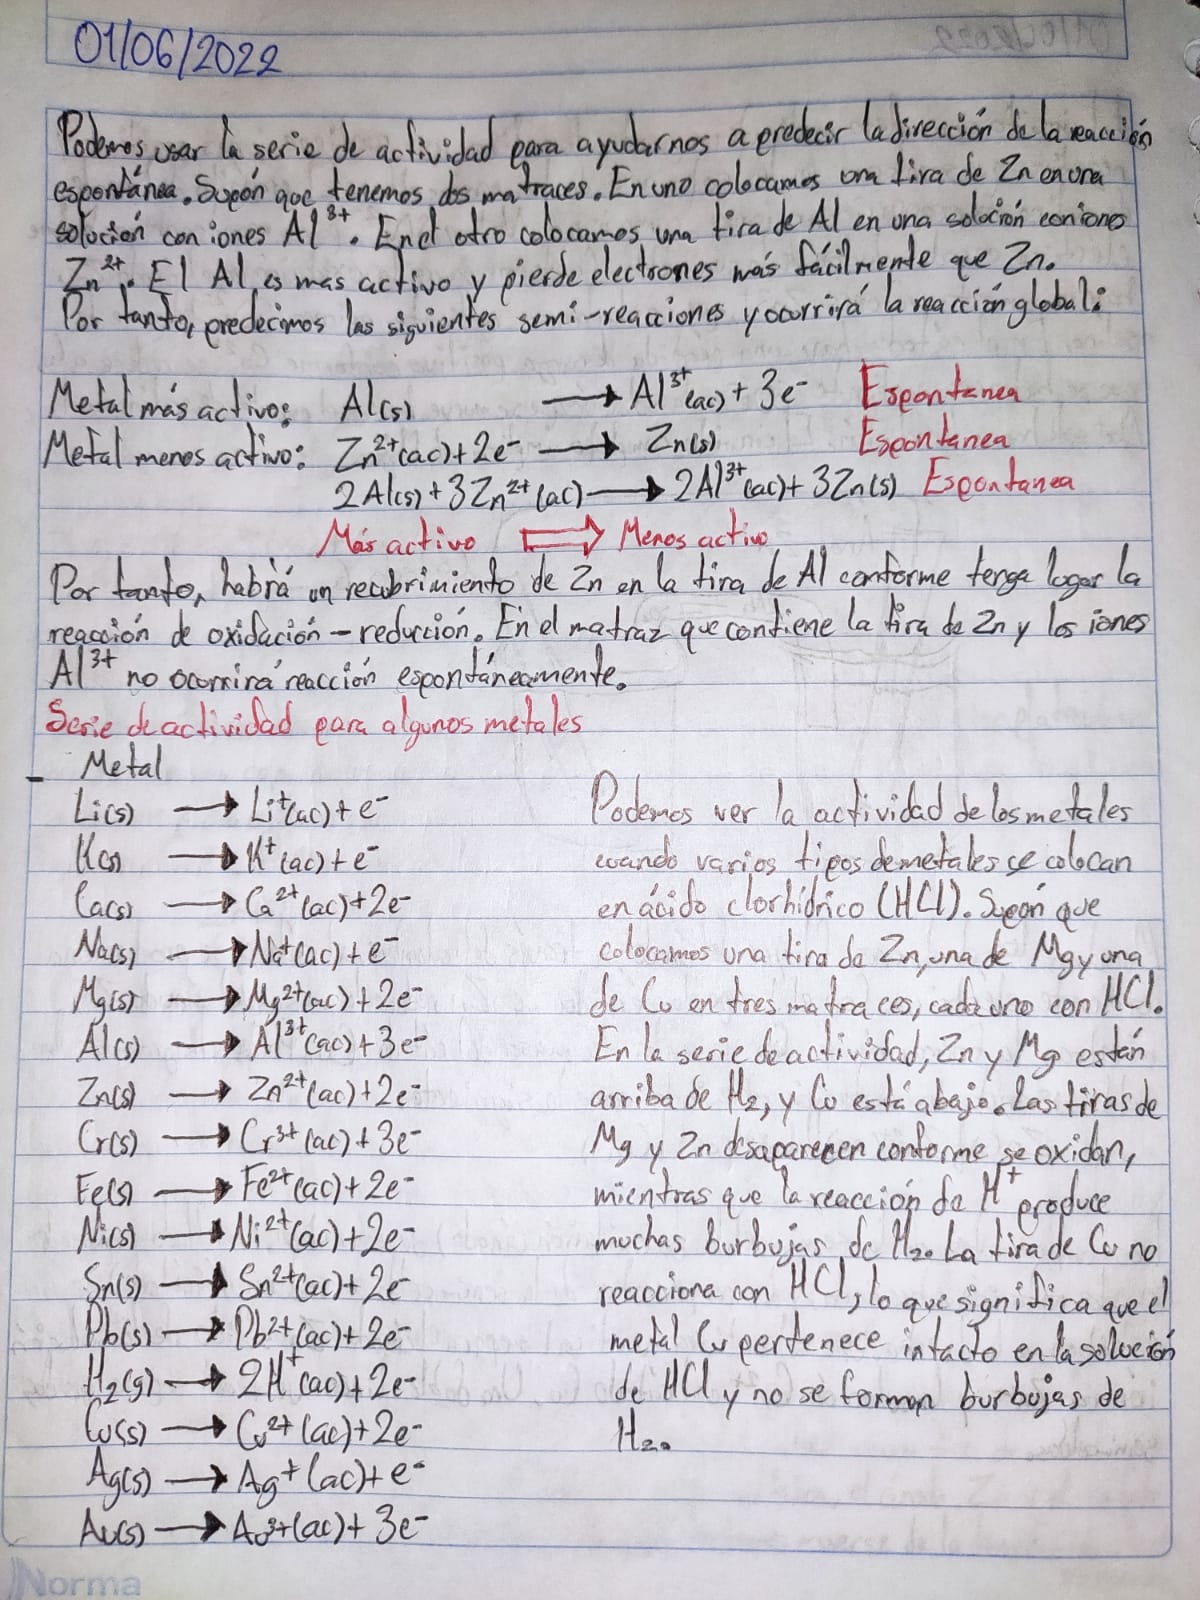 01/06/2022
Podemos usar la serie de actividad para ayudarnos a predecir la dirección de la reacción
espontánea. Supón que tenemos dos matraces. En uno colocamos una tira de Zn en una
solución con iones Al³⁺. En el otro colocamos una tira de Al en una solución con iones
Zn²⁺. El Al es mas activo y pierde electrones más fácilmente que Zn.
Por tanto, predecimos las siguientes semi-reacciones y ocurrirá la reacción global:
Metal más activo: Al(s) → Al³⁺(ac) + 3e⁻ Espontanea
Metal menos activo: Zn²⁺(ac) + 2e⁻ → Zn(s) Espontanea
2Al(s) + 3Zn²⁺(ac) → 2Al³⁺(ac) + 3Zn(s) Espontanea
Más activo ⇒ Menos activo
Por tanto, habrá un recubrimiento de Zn en la tira de Al conforme tenga lugar la
reacción de oxidación-reducción. En el matraz que contiene la tira de Zn y los iones
Al³⁺ no ocurrirá reacción espontáneamente.
Serie de actividad para algunos metales
- Metal
Li(s) → Li⁺(ac) + e⁻
K(s) → K⁺(ac) + e⁻
Ca(s) → Ca²⁺(ac) + 2e⁻
Na(s) → Na⁺(ac) + e⁻
Mg(s) → Mg²⁺(ac) + 2e⁻
Al(s) → Al³⁺(ac) + 3e⁻
Zn(s) → Zn²⁺(ac) + 2e⁻
Cr(s) → Cr³⁺(ac) + 3e⁻
Fe(s) → Fe²⁺(ac) + 2e⁻
Ni(s) → Ni²⁺(ac) + 2e⁻
Sn(s) → Sn²⁺(ac) + 2e⁻
Pb(s) → Pb²⁺(ac) + 2e⁻
H₂(g) → 2H⁺(ac) + 2e⁻
Cu(s) → Cu²⁺(ac) + 2e⁻
Ag(s) → Ag⁺(ac) + e⁻
Au(s) → Au³⁺(ac) + 3e⁻
Podemos ver la actividad de los metales
cuando varios tipos de metales se colocan
en ácido clorhídrico (HCl). Supón que
colocamos una tira de Zn, una de Mg y una
de Cu en tres matraces, cada uno con HCl.
En la serie de actividad, Zn y Mg están
arriba de H₂, y Cu está abajo. Las tiras de
Mg y Zn desaparecen conforme se oxidan,
mientras que la reacción de H⁺ produce
muchas burbujas de H₂. La tira de Cu no
reacciona con HCl, lo que significa que el
metal Cu pertenece intacto en la solución
de HCl y no se forman burbujas de
H₂.
Norma